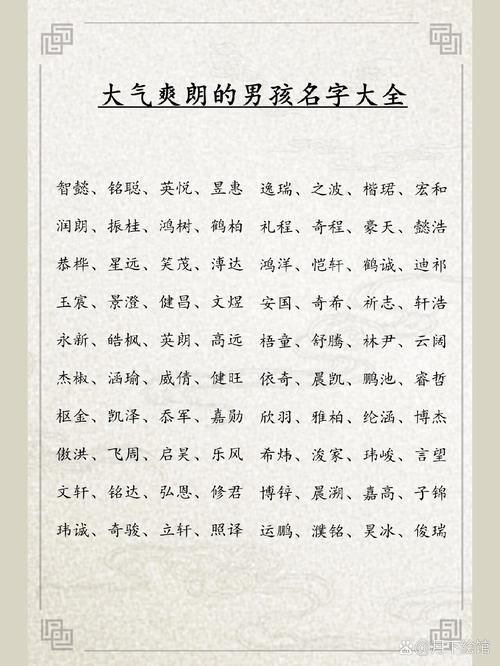 大气爽朗的男孩名字大全
智懿、铭聪、英悦、昱惠 逸瑞、之波、楷珺、宏和
润朗、振桂、鸿树、鹤柏 礼程、奇程、豪天、懿浩
恭桦、星远、笑茂、漙达 鸿洋、恺轩、鹤诚、迪祁
玉宸、景澄、健昌、文煜 安国、奇希、祈志、轩浩
永新、皓枫、英朗、高远 梧童、舒腾、林尹、云阔
杰椒、涵瑜、威倩、健旺 依奇、晨凯、鹏池、睿哲
枢金、凯泽、忝军、嘉勋 欣羽、雅柏、纶涵、博杰
傲洪、飞周、启昊、乐风 希炜、浚家、玮峻、言望
文轩、铭达、弘恩、修君 博锌、晨溯、嘉高、子锦
玮诚、奇骏、立轩、照译 运鹏、濮铭、昊冰、俊瑞